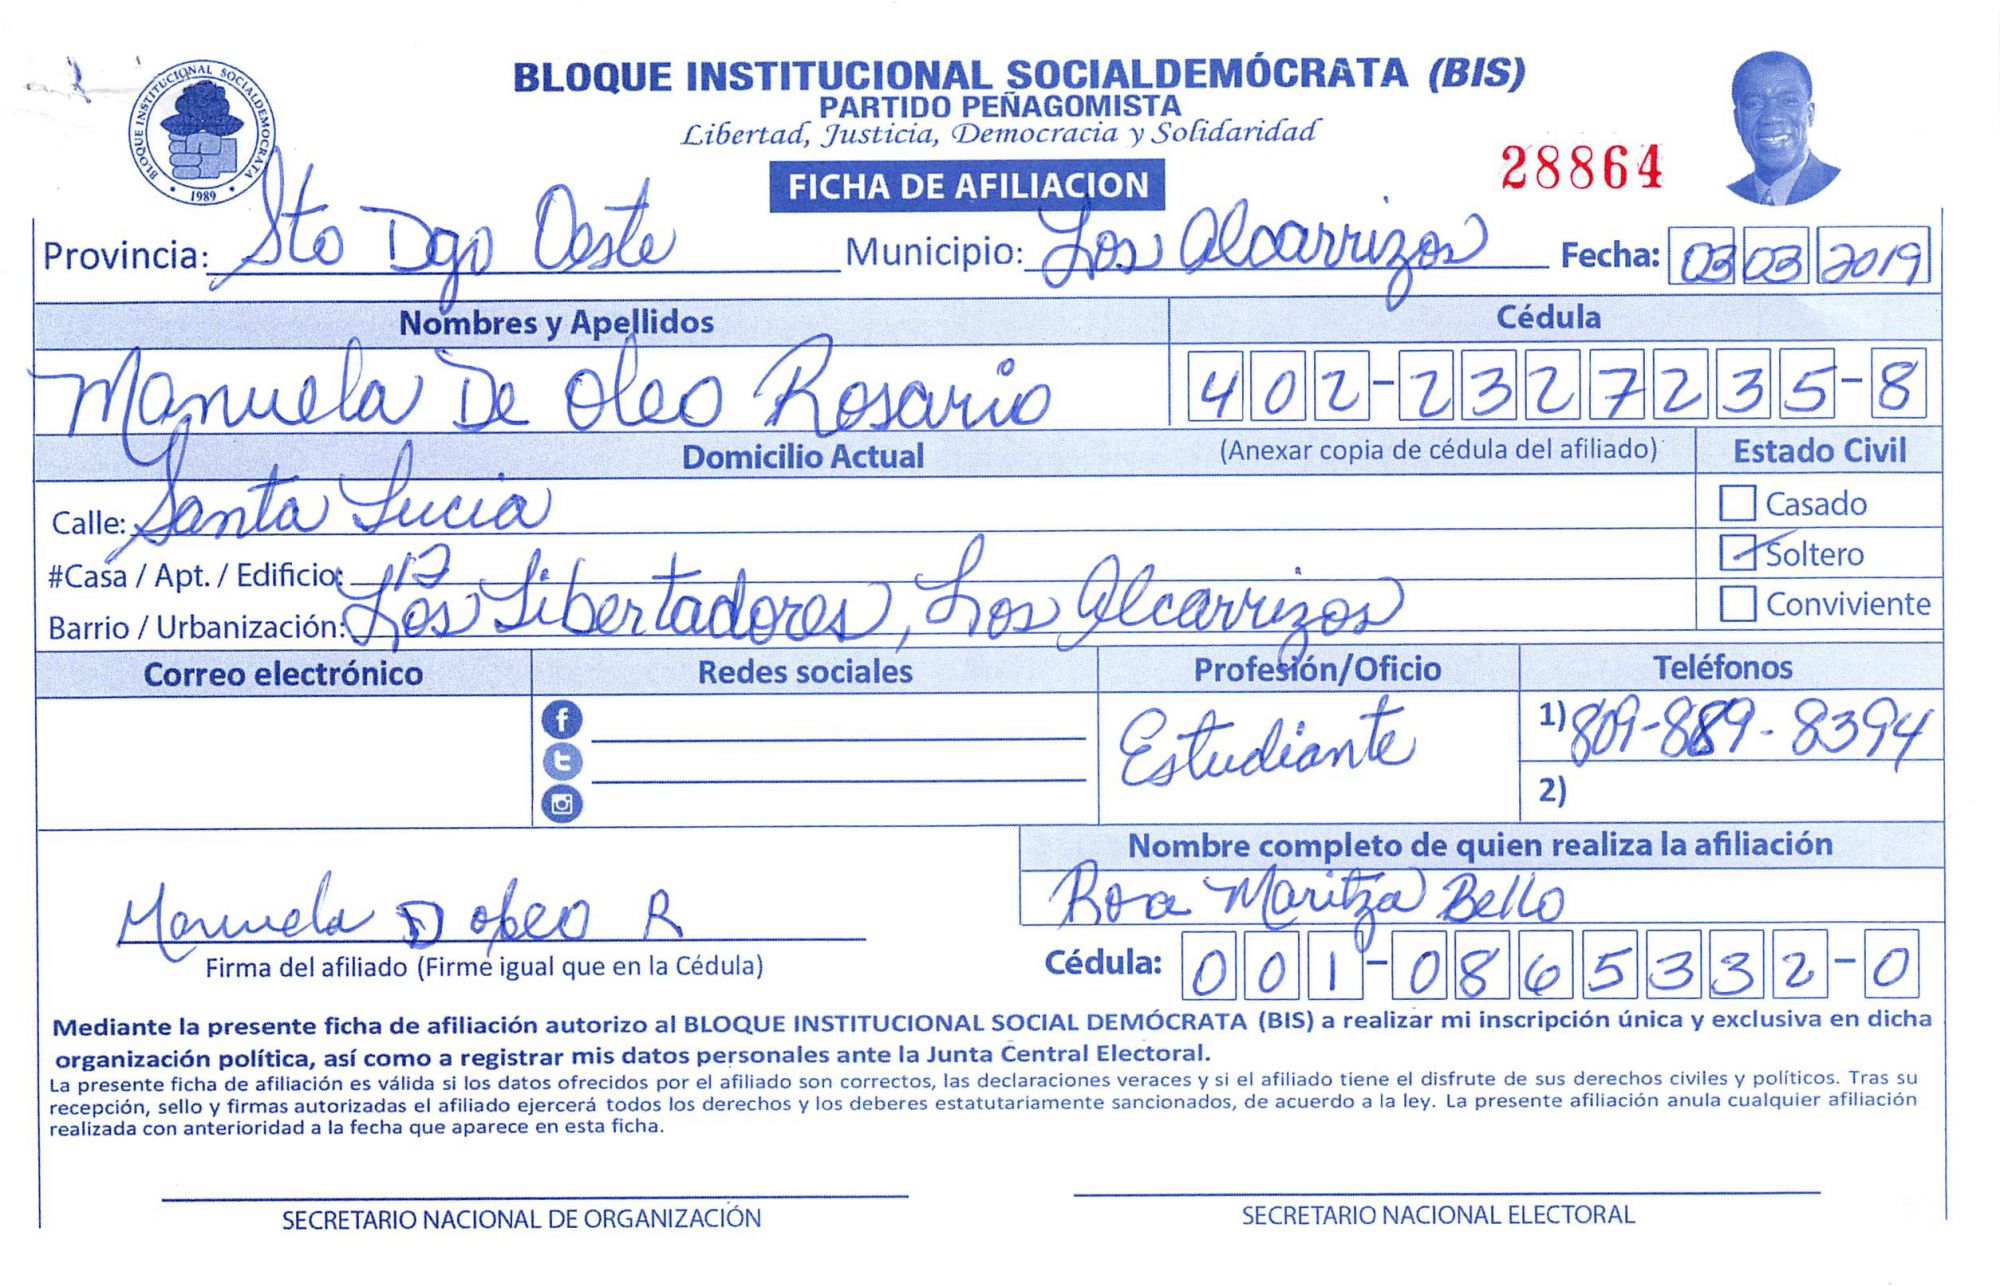 BLOQUE INSTITUCIONAL SOCIALDEMOCRATA
1989
BLOQUE INSTITUCIONAL SOCIALDEMÓCRATA (BIS)
PARTIDO PEÑAGOMISTA
Libertad, Justicia, Democracia y Solidaridad
FICHA DE AFILIACION
28864
Provincia: Sto Dgo Oeste Municipio: Los Alcarrizos Fecha: 03 03 2019
Nombres y Apellidos Cédula
Manuela De Oleo Rosario 402-2327235-8
Domicilio Actual (Anexar copia de cédula del afiliado) Estado Civil
Calle: Santa Lucia Casado
#Casa / Apt. / Edificio: 17 Soltero
Barrio / Urbanización: Los Libertadores, Los Alcarrizos Conviviente
Correo electrónico Redes sociales Profesión/Oficio Teléfonos
Estudiante 1) 809-889-8394
2)
Nombre completo de quien realiza la afiliación
Manuela D oleo R Rosa Maritza Bello
Firma del afiliado (Firme igual que en la Cédula) Cédula: 001-0865332-0
Mediante la presente ficha de afiliación autorizo al BLOQUE INSTITUCIONAL SOCIAL DEMÓCRATA (BIS) a realizar mi inscripción única y exclusiva en dicha
organización política, así como a registrar mis datos personales ante la Junta Central Electoral.
La presente ficha de afiliación es válida si los datos ofrecidos por el afiliado son correctos, las declaraciones veraces y si el afiliado tiene el disfrute de sus derechos civiles y políticos. Tras su
recepción, sello y firmas autorizadas el afiliado ejercerá todos los derechos y los deberes estatutariamente sancionados, de acuerdo a la ley. La presente afiliación anula cualquier afiliación
realizada con anterioridad a la fecha que aparece en esta ficha.
SECRETARIO NACIONAL DE ORGANIZACIÓN SECRETARIO NACIONAL ELECTORAL